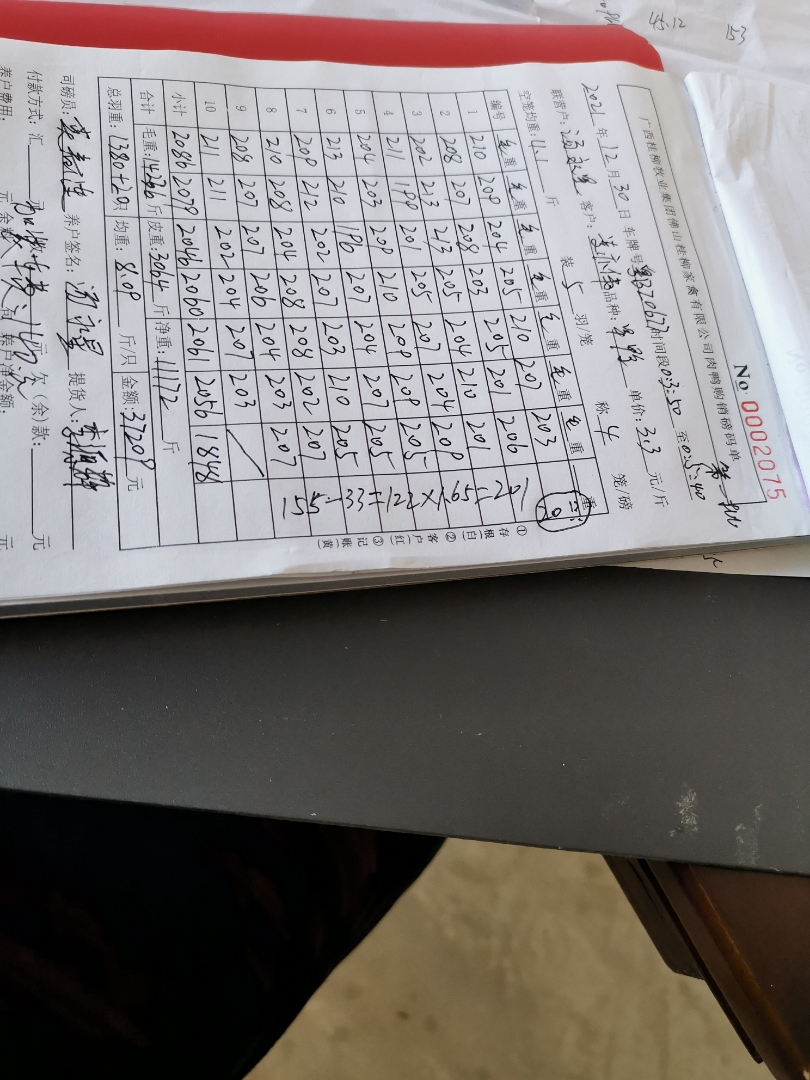 No. 0002075
广西桂柳牧业集团佛山桂柳家禽有限公司肉鸭购销磅码单
2021 年 12 月 30 日 车牌号 时间段 0:3:50 至 0:5:40
联营户: 客户: 品种: 单价: 3.3 元/斤
空笼均重: 4.1 斤 装 5 羽/笼 称 4 笼/磅
编号 毛重 毛重 毛重 毛重 毛重 毛重 毛重 重
1 210 209 204 205 210 207 203
2 208 207 208 203 205 201 206
3 202 213 213 205 204 210 201
4 211 199 201 205 207 204 209
5 204 203 209 210 209 209 205
6 213 210 196 207 204 207 205
7 209 212 202 207 203 210 205
8 210 208 204 208 208 202 207
9 208 207 207 206 204 203 207
10 211 211 202 204 207 203
155-33=122×1.65=201
小计 2086 2079 2046 2060 2061 2056 1848
合计 毛重: 14236 斤 皮重: 3064 斤 净重: 11172 斤
总羽重: 1380+20 只 均重: 8.09 斤/只 金额: 37209 元
司磅员: 养户签名: 提货人:
付款方式: 汇 元 欠(余)款: 元
养户费用: 元
①存根(白) ②客户(红) ③记账(黄)
45.12
153